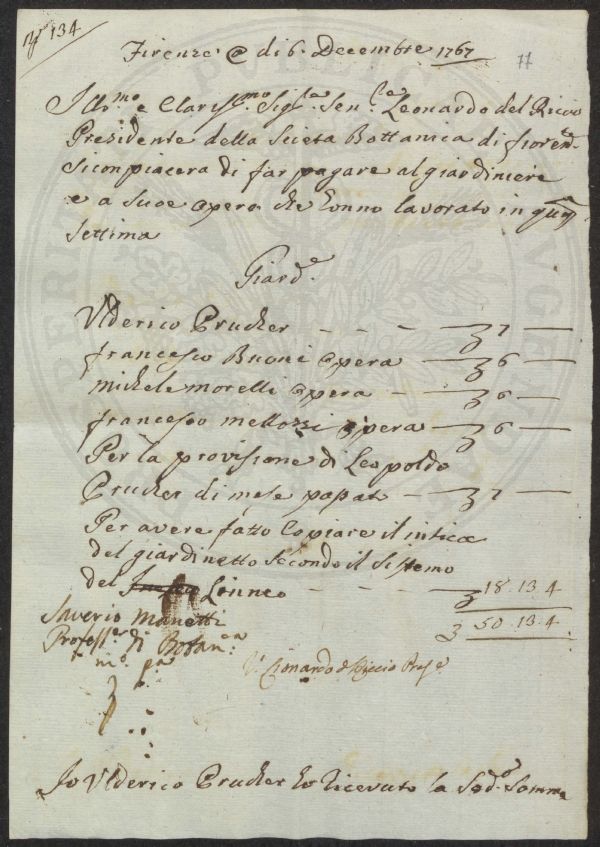 N° 134
Firenze @ di 6. Decembre 1767
77
Ill:mo e Clariss:mo Sig:re Sen:re Leonardo del Riccio
Presidente della Sicieta Bottanica di fioren
Siconpiacera di far pagare al giardiniere
e a sue opera che honno lavorato in
settima
Giard:e
Ulderico Prucker - - - 7 —
francesco Buoni opera — 6 —
michele morelli opera - 6 —
francesco mellozzi opera — 6 —
Per la provisione di Leopoldo
Prucker di mese passato — 7 —
Per avere fatto Copiare il intice
del giardinetto secondo il Sistemo
del Linneo - - - - 18 . 13 . 4
50 . 13 . 4
Saverio Manetti
Profess:re di Botan:ca
m:o p:a
V: Leonardo del Riccio Pres:e
Io Ulderico Prucker ho ricevuto la Sod:a Somma